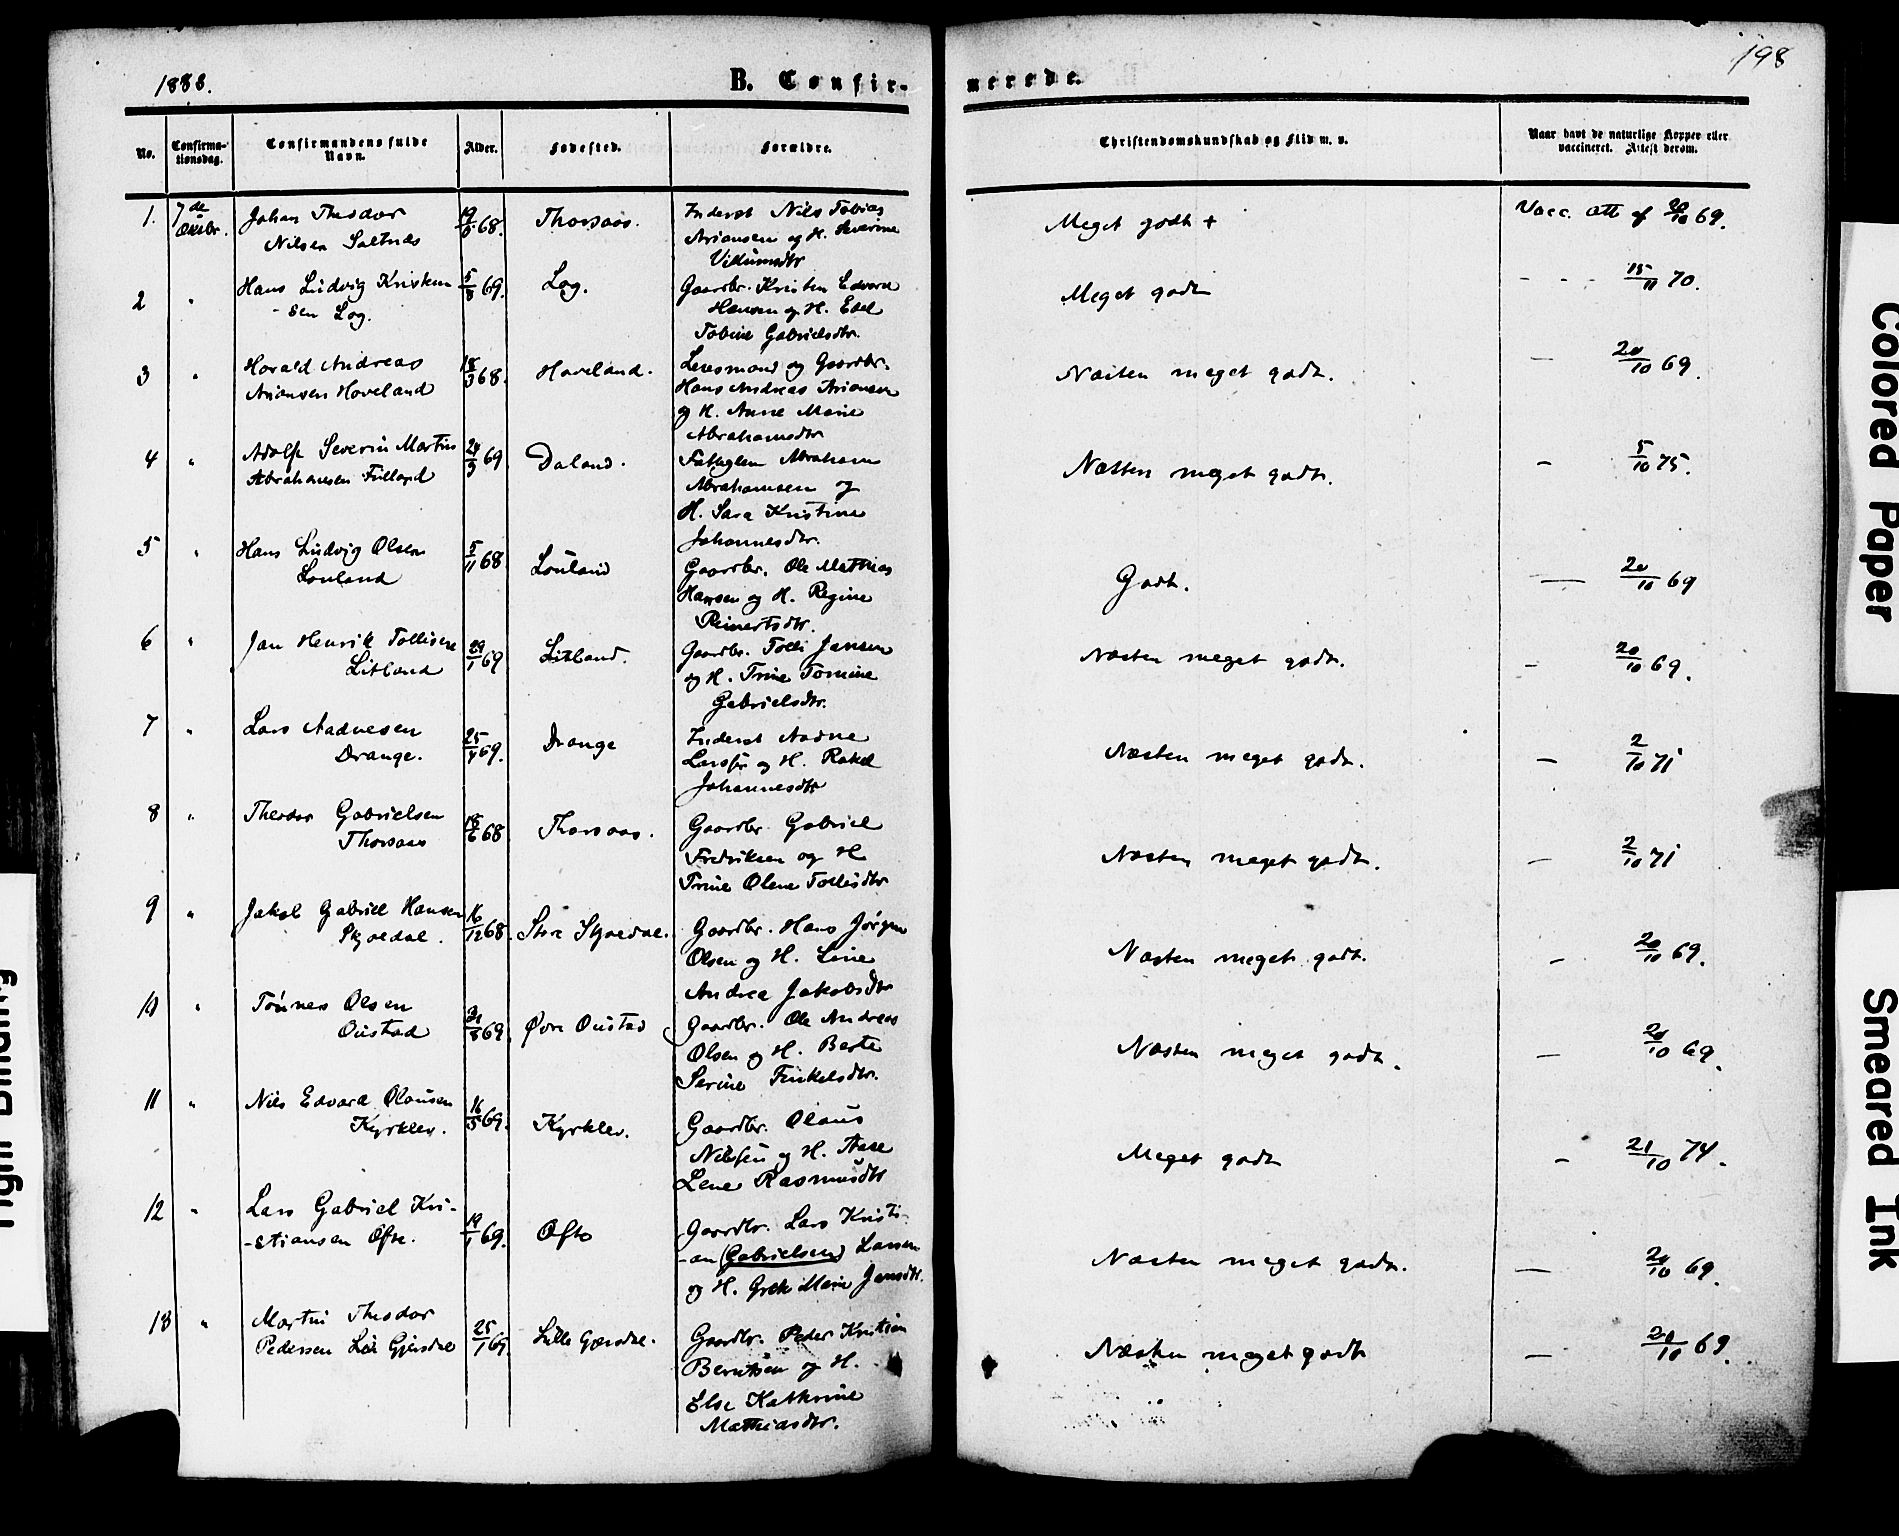 198
1883.
B. Confir-
merede.
No.
Confirma-
tionsdag.
Confirmandens fulde
Navn.
Alder.
Fødested.
Forældre.
Christendomskundskab og Flid m. v.
Naar havt de naturlige Kopper eller
vaccineret. Attest derom.
1. 7de Johan Theodor 68. Thorsaas. Inderst Nils Tobias Meget godt + Vacc. att af 20/10 69.
Oktbr. Nilsen Saltnes Ariansen og H. Severine
Villumsdtr
2 " Hans Ludvig Kristen 5/8 69. Log. Gaardbr. Kristen Edvard Meget godt - - - 15/11 70.
- sen Log. Hansen og H. Edel
Tobine Gabrielsdtr.
3 " Harald Andreas 18/3 68. Haveland. Lensmand og Gaardbr. Næsten meget godt. — 20/10 69.
Ariansen Haveland Hans Andreas Ariansen
og H. Anne Marie
Abrahamsdtr
4 " Adolf Severin Martin 24/3 69 Daland. Abraham Næsten meget godt. — 5/10 75.
Abrahamsen Abrahamsen og
H. Sara Kristine
Johannesdtr.
5 " Hans Ludvig Olsen 5/11 68 Louland Gaardbr. Ole Mathias Godt. — 20/10 69
Louland Hansen og H. Regine
Reinertsdtr.
6 " Jan Henrik Tollisen 29/1 69 Litland. Gaardbr. Tolli Jansen Næsten meget godt. — 20/10 69.
Litland og H. Trine Tomine
Gabrielsdtr.
7 " Lars Aadnesen 25/4 69. Drange Inderst Aadne Næsten meget godt. — 2/10 71
Drange. Larssen og H. Rakel
Johannesdtr
8 " Theodor Gabrielsen 18/6 68 Thorsaas. Gaardbr Gabriel Næsten meget godt. — 2/10 71
Thorsaas Fredriksen og H
Trine Olene Tollisdtr
9 " Jakob Gabriel Hansen 16/12 68. Store Skjoldal. Gaardbr. Hans Jørgen Næsten meget godt. — 20/10 69.
Skjoldal. Olsen og H. Line
Andrea Jakobsdtr
10 " Tønnes Olsen 69. Øvre Oustad Gaardbr. Ole Andreas Næsten meget godt. — 20/10 69.
Oustad Olsen og H. Berte
Serine Tenkelsdtr.
11 " Nils Edvard Olausen 16/5 69. Kyrklev. Gaardbr. Olaus Meget godt — 21/10 74.
Kyrklev. Nilssen og H. Aase
Lene Rasmusdtr
12 " Lars Gabriel Kri- 19/1 69. Ofte Gaardbr. Lars Kristi- Næsten meget godt. — 20/10 69.
-stiansen Ofte. -an (Gabrielsen) Larsen
og H. Grete Marie Jansdtr.
13 " Martin Theodor 25/1 69. Lille Gjersdal. Gaardbr. Peder Kristian Næsten meget godt — 20/10 69.
Pedersen Lille Gjersdal Berntsen og H.
Else Kathrine
Mathiasdtr.
Colored Paper
Smeared Ink
Tight Binding